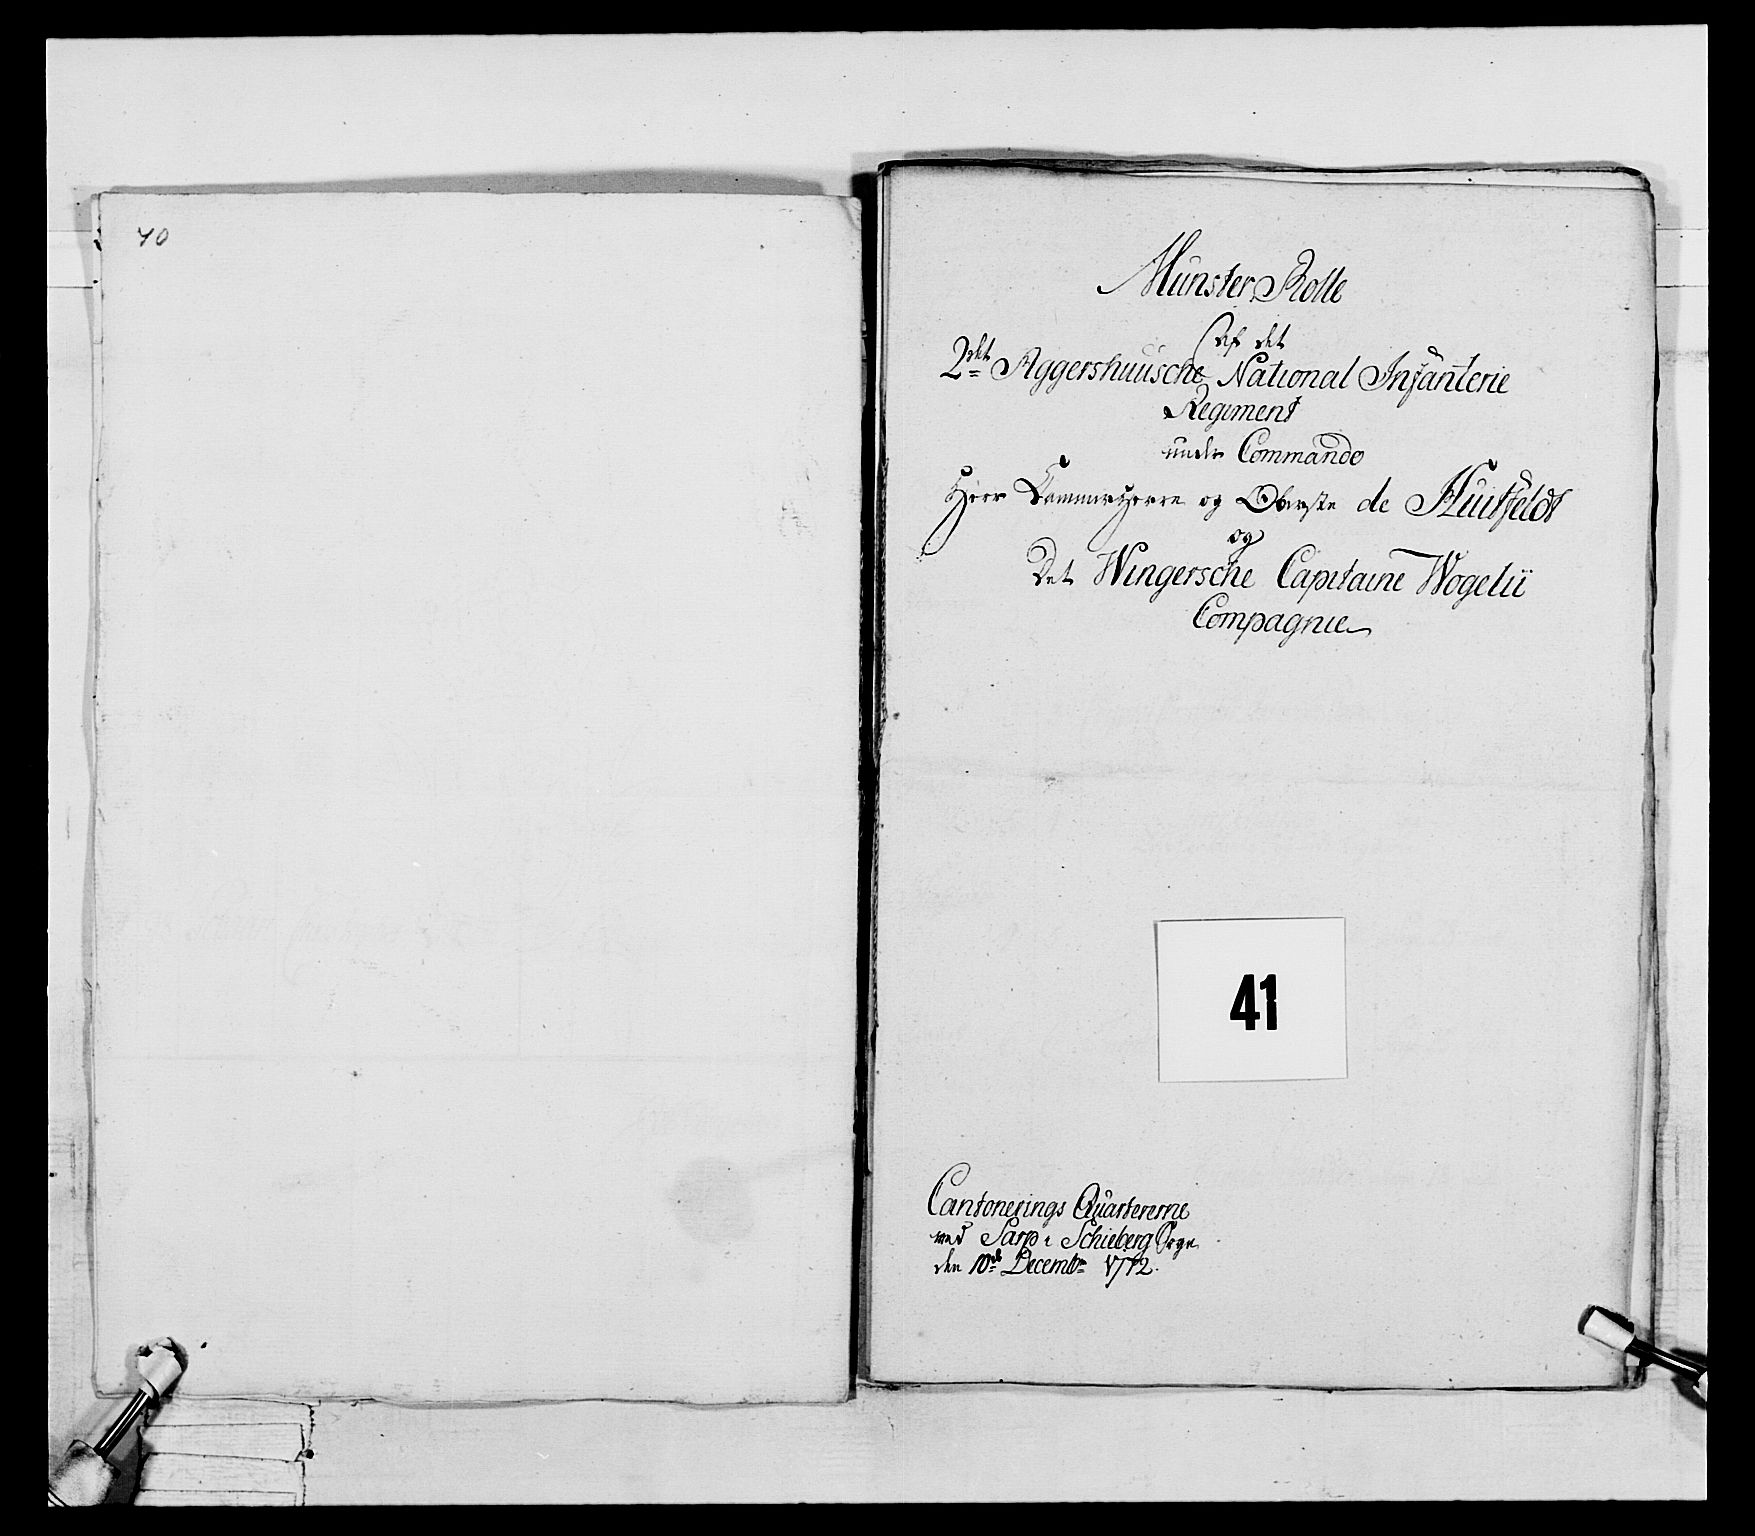 40
Münster Rolle
Af det
2det Aggershuusche National Infanterie
Regiment
under Commando
Herr Cammerherre og Oberste de Huitfeldt
og
Det Wingersche Capitaine Wogelii
Compagnie
41
Cantonerings Quartererne
ved Sarp i Schieberg Sogn
den 10de Decembr 1772.